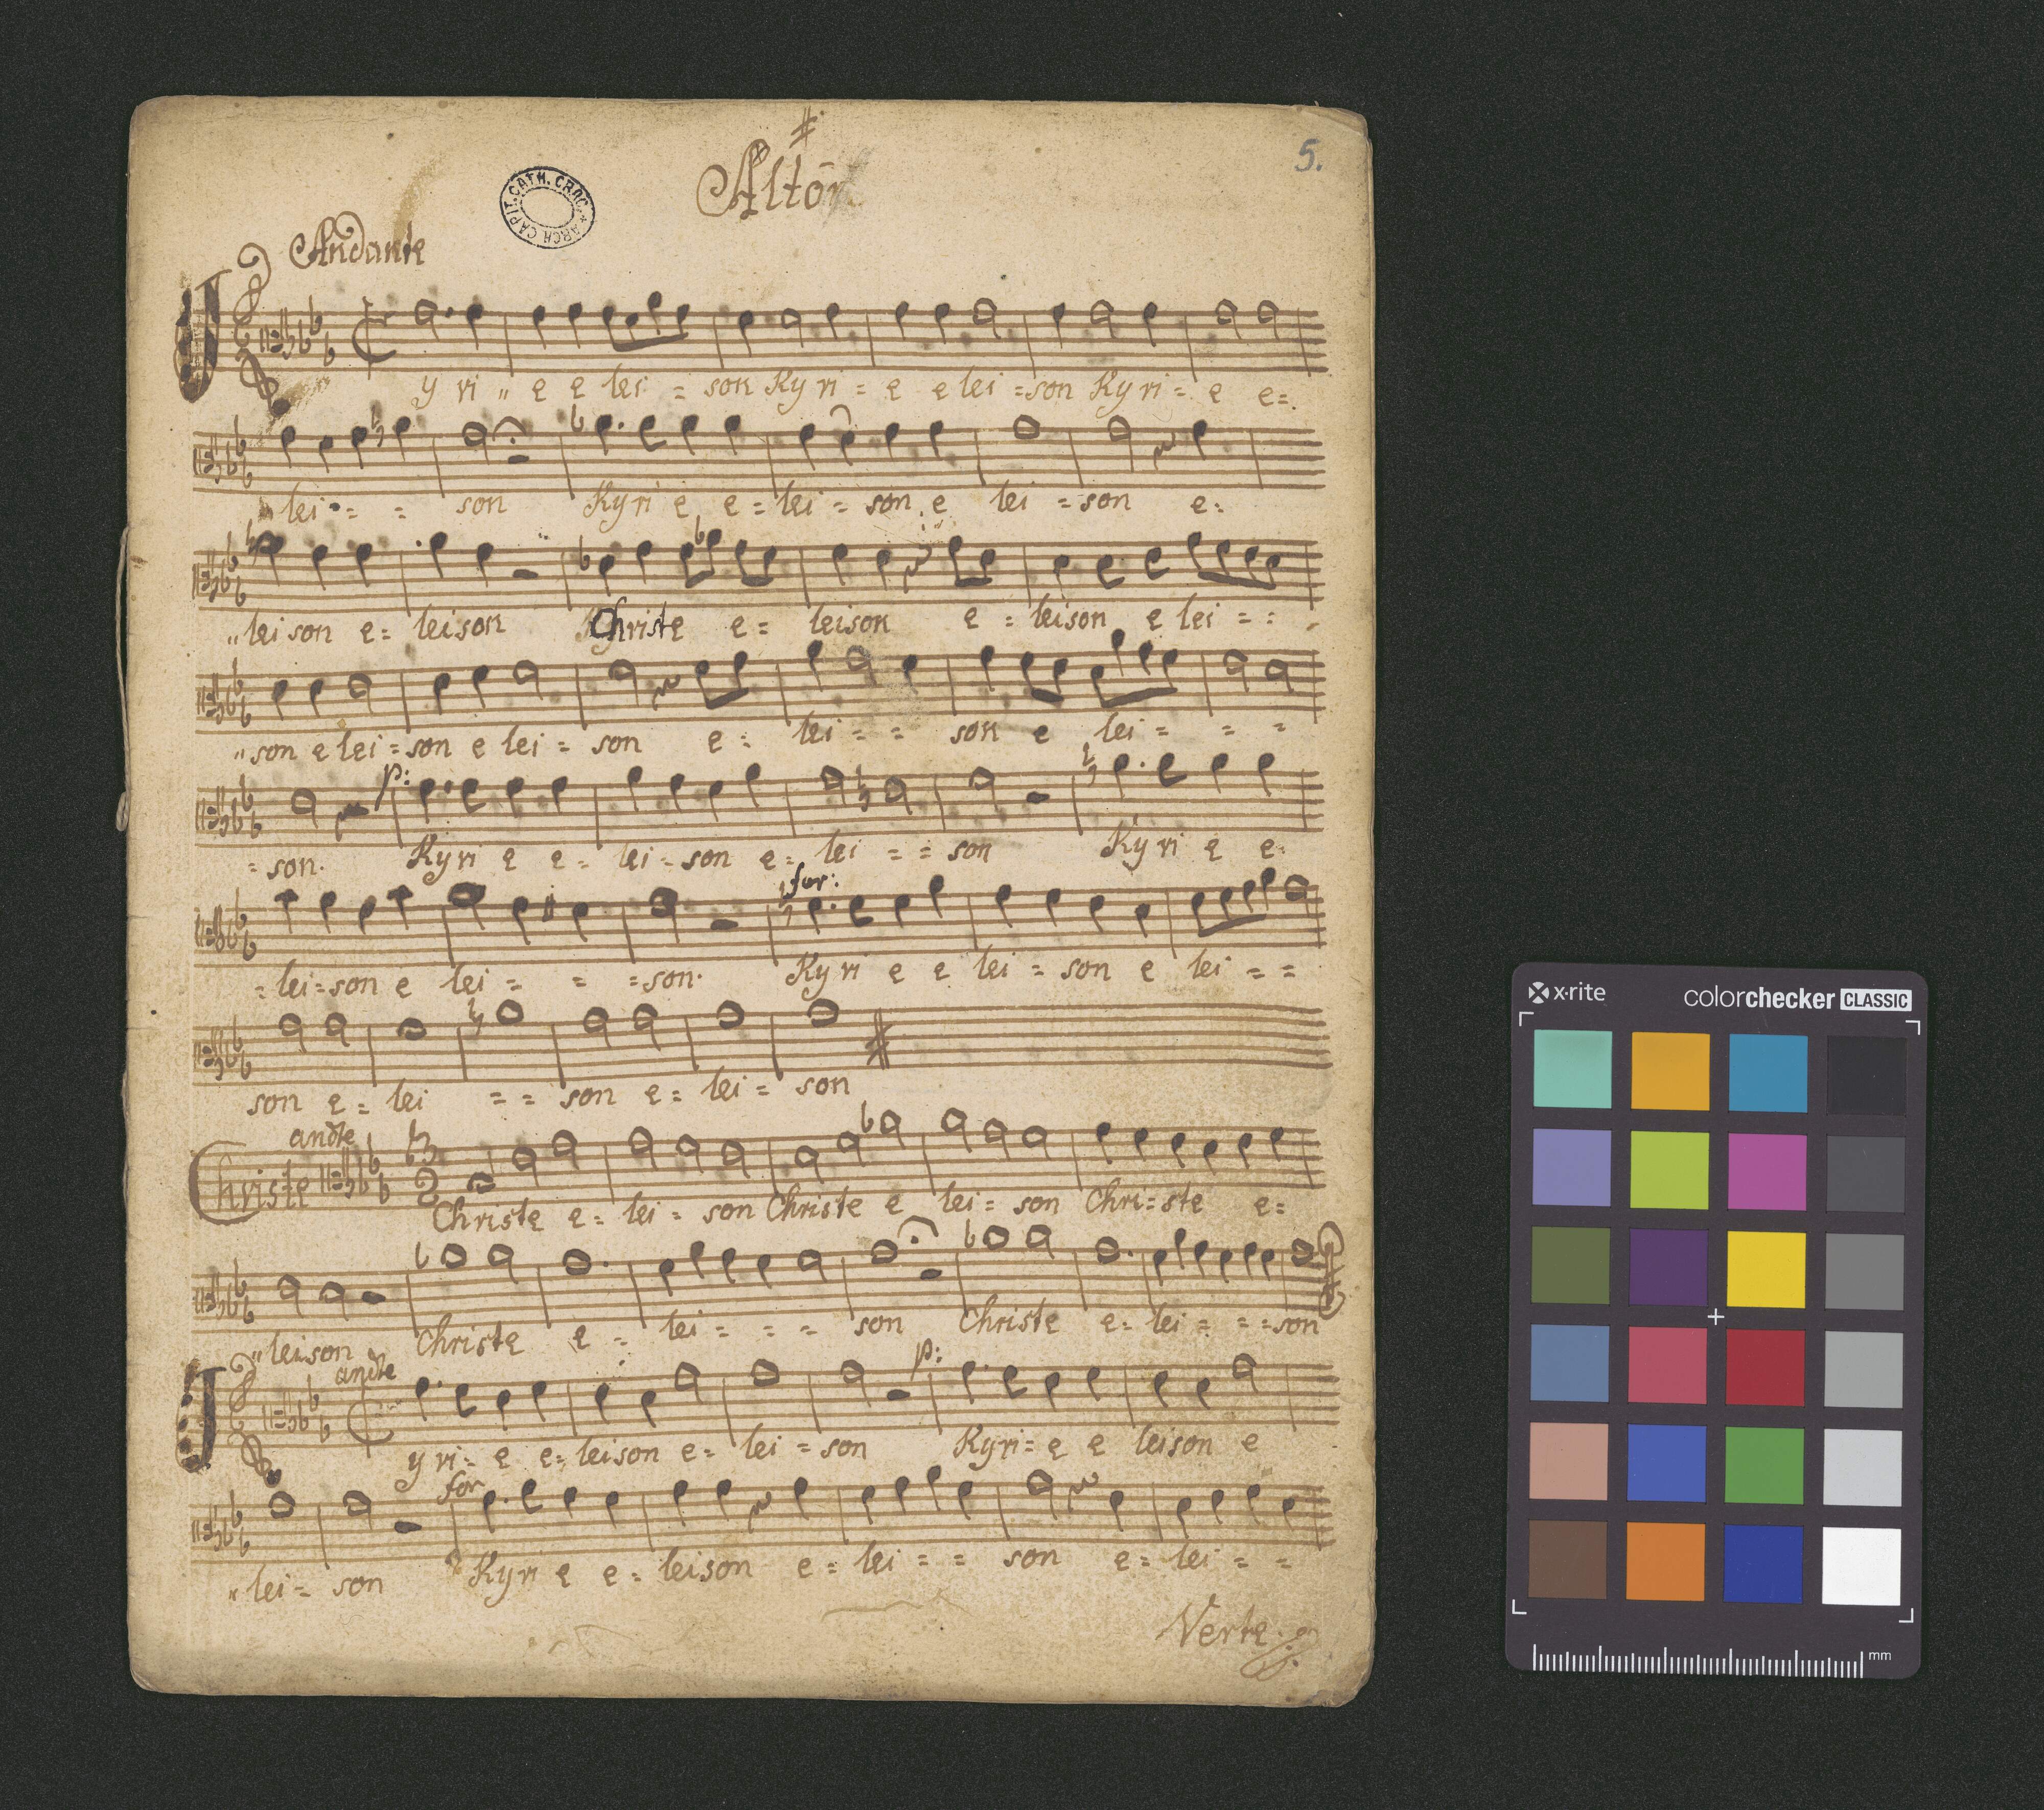 5.
Alto
CAPIT. CATH. CRAC. ARCH
Andante
Kyri " e e lei = son Kyri = e e lei = son Kyri = e e =
lei = = son Kyri e e = lei = son e lei = son e:
" leison e = leison Christe e = leison e = leison e lei = =
" son e lei = son e lei = son e = lei = = son e lei = = =
p:
= son. Kyri e e = lei = son e = lei = = son Kyri e e =
for:
= lei = son e lei = = = son. Kyri e e lei = son e lei = =
son e = lei = = son e = lei = son
andte
3
2
Christe Christe e = lei = son Christe e lei = son Chri = ste e =
" leison Christe e = lei = = = son Christe e = lei = = = son
andte p:
Kyri = e e = leison e = lei = son Kyri = e e leison e
for
" lei = son Kyri e e = leison e = lei = = son e = lei = =
Verte
x·rite colorchecker CLASSIC
mm